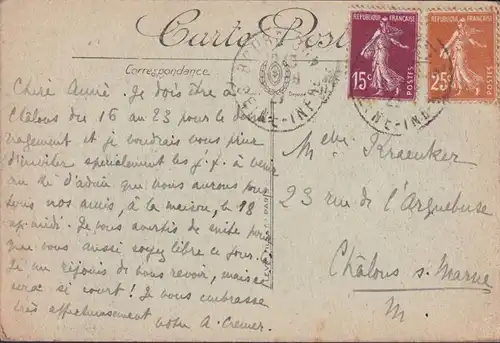 Carte Post
Correspondance
RÉPUBLIQUE FRANÇAISE
15c
POSTES
RÉPUBLIQUE FRANÇAISE
25c
POSTES
NE-INF
Chère Amie. Je dois être à
Châlons du 16 au 23 pour le
et je voudrais vous prier
d'inviter spécialement les j.f. à venir
au thé d'adieu que nous aurons pour
tous nos amis, à la maison, le 18
ap-midi. Je vous avertis de suite pour
que vous aussi soyez libre ce jour. -
Je me réjouis de vous revoir, mais ce
sera si court! Je vous embrasse
très affectueusement votre A. Cremer.
Melle Kraenker
23 rue de l'Arquebuse
Châlons s. Marne
M.